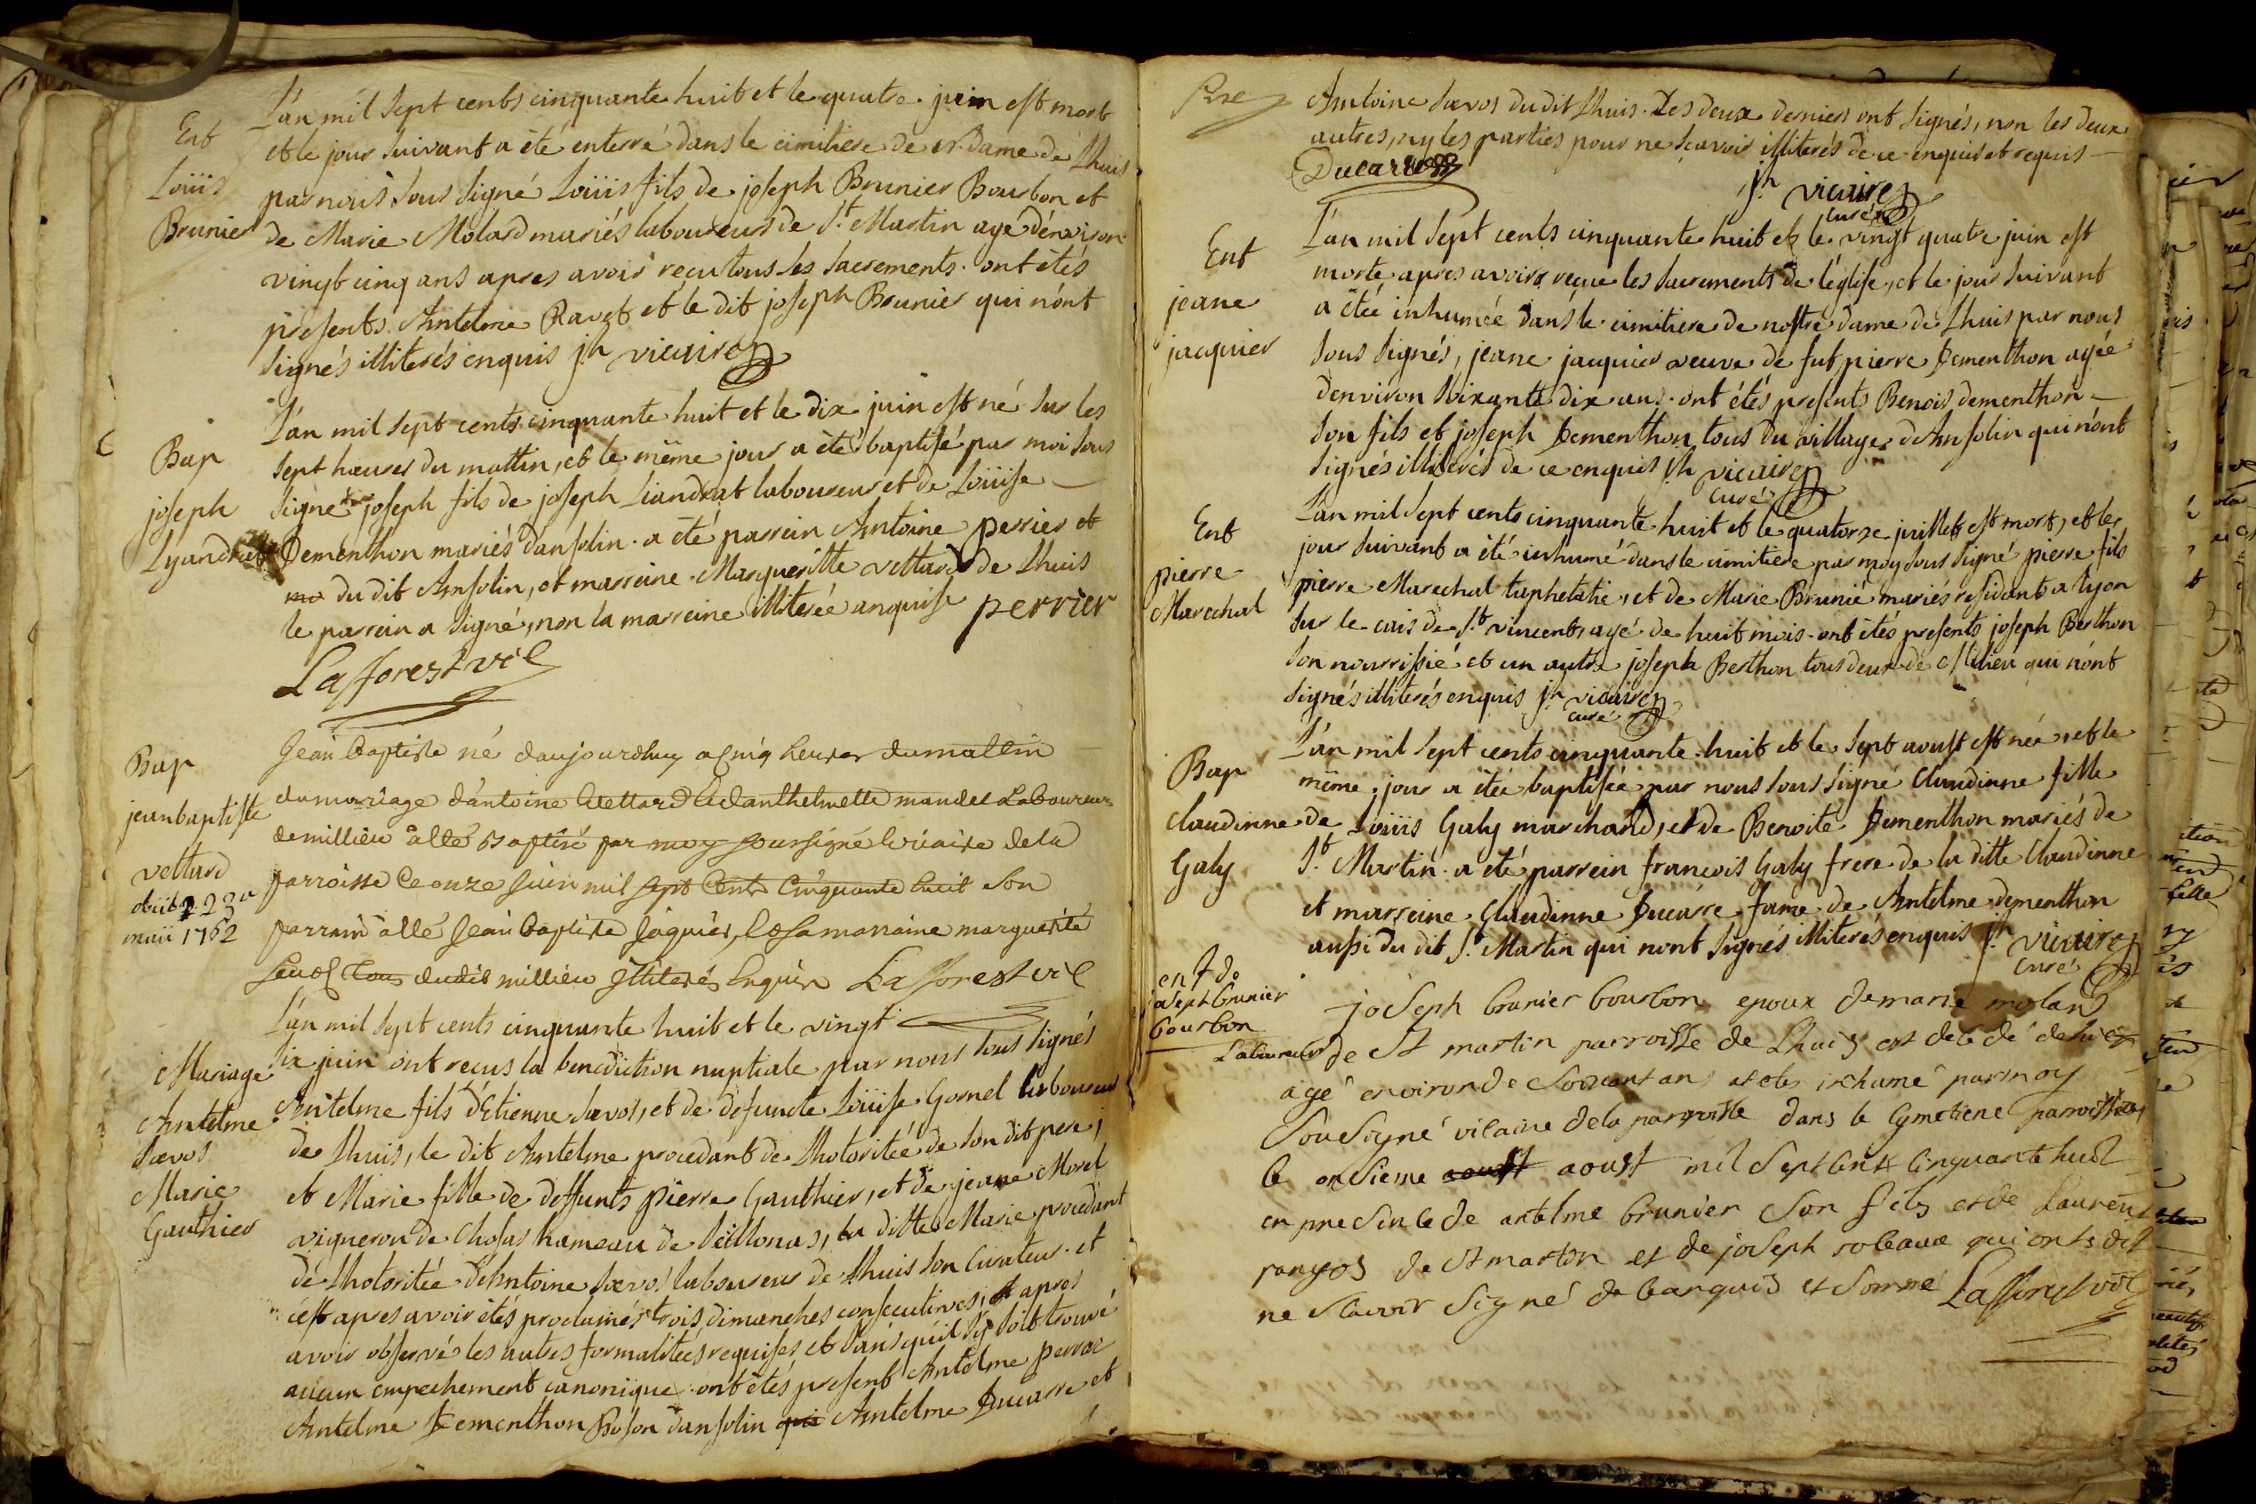 Ent
Loüis
Brunier
L'an mil sept cents cinquante huit et le quatre juin est mort
et le jour suivant a été enterré dans le cimitiere de nr. Dame de Lhuis
par nous sous signé Loüis fils de joseph Brunier Bourbon et
de Marie Molard mariés laboureurs de St. Martin agé d'environ
vingt cinq ans apres avoir reçu tous les sacrements. ont étés
presents Antelme Ravet et le dit joseph Brunier qui n'ont
signés illiterés enquis jn vicaire
Bap
joseph
Lyandrat
L'an mil sept cents cinquante huit et le dix juin est né sur les
sept heures du mattin, et le même jour a été baptisé par moi sous
signé joseph fils de joseph Liandrat laboureur et de Loüise
Dementhon mariés d'ansolin. a été parrein Antoine perrier et
du dit Ansolin, et marreine Margueritte vettard de Lhuis
le parrein a signé, non la marreine illiterée enquise perrier
Lafforest vic
Bap
jean baptiste
vettard
obiit 22a
maii 1762
Jean baptiste né daujourdhuy a cinq heures du mattin
du mariage d'antoine Vettard et danthelmette mandet Laboureur
de millieu a été Baptisé par moy soursigné vicaire de la
parroisse le onze juin mil sept Cents Cinquante huit son
parrain a été Jean baptiste jaquier, et sa marraine marguerite
tous dudit millieu illiterés Enquis Lafforest vic
Mariage
Antelme
Savos
Marie
Gauthier
L'an mil sept cents cinquante huit et le vingt
six juin ont reçus la benediction nuptiale par nous sous signés
Antelme fils d'Etienne Savos, et de defuncte Loüise Gornel laboureur
de Lhuis, le dit Antelme procedant de Lhotoritée de son dit pere,
et Marie fille de deffunts pierre Gauthier, et de jeane Morel
vigneron de Chosas hameau de Seillonas, la ditte Marie procedant
de Lhotoritée d'Antoine Savos laboureur de Lhuis son Curateur. et
c'est apres avoir étés proclamés trois dimanches consecutives, et apres
avoir observé les autres formalitées requises et sans qu'il s'y soit trouvé
aucun empechement canonique. ont étés present Antelme perrac
Antelme Dementhon Boson d'ansolin qui Antelme Ducarre et
Antoine Savos du dit Lhuis. Les deux derniers ont signés, non les deux
autres, ny les parties pour ne scavoir illiterés de ce enquis et requis
Ducarre
jn vicaire
curé
Ent
jeane
jacquier
L'an mil sept cents cinquante huit et le vingt quatre juin est
morte apres avoir reçue les sacrements de l'église, et le jour suivant
a étée inhumée dans le cimitiere de nostre dame de Lhuis par nous
sous signés, jeane jacquier veuve de fut pierre Dementhon agée
d'environ soixante dix ans. ont étés presents Benois dementhon
son fils et joseph Dementhon tous du village d'Ansolin qui n'ont
signés illiterés de ce enquis jn vicaire
curé
Ent
pierre
Marechal
L'an mil sept cents cinquante huit et le quatorze juillet est mort, et le
jour suivant a été inhumé dans le cimitiere par moy sous signé pierre fils
pierre Marechal taphetatié, et de Marie Brunié mariés residants a Lyon
sur le cais de St. vincent, agé de huit mois. ont étés presents joseph Berthon
son nourrissié et un autre joseph Berthon tous deux de Millieu qui n'ont
signés illiterés enquis jn vicaire
curé
Bap
Claudinne
Galy
L'an mil sept cents cinquante huit et le sept aoust est née, et le
même jour a étée baptisée par nous sous signé Claudinne fille
de Loüis Galy marchand, et de Benoite Dementhon mariés de
St. Martin. a été parrein francois Galy frere de la ditte Claudinne
et marreine Claudinne Ducarre fame de Antelme dementhon
aussi du dit St. Martin qui n'ont signés illiterés enquis jn vicaire
Curé
ent de
joseph brunier
bourbon
Laboureur
joseph brunier bourbon epoux de marie molard
de St martin parroisse de Lhuis est décédé
agé environ de soixant ans et a été inhumé par moy
Sousigné vicaire de la parroisse dans le cymetiere
le onsieme aoust aoust mil sept Cents Cinquante huit
en presence de antelme brunier son fils et de Laurent
de St martin et de joseph qui ont dit
ne scavoir signé de ce anquis et sommé Lafforest vic